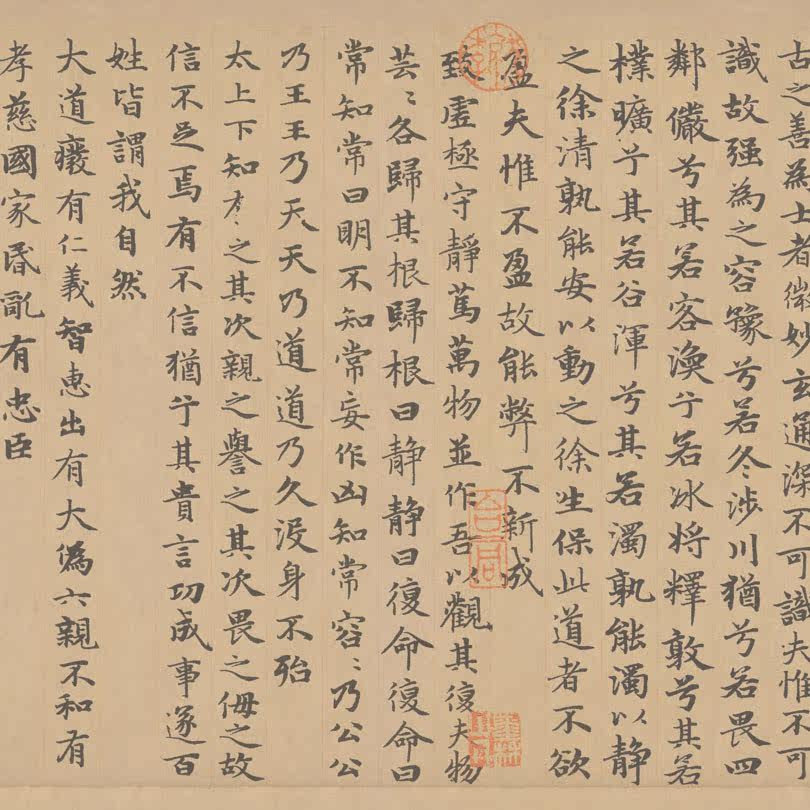 古之善為士者微妙玄通深不可識夫惟不可
識故强為之容豫兮若冬涉川猶兮若畏四
鄰儼兮其若容渙兮若冰將釋敦兮其若
樸曠兮其若谷渾兮其若濁孰能濁以靜
之徐清孰能安以動之徐生保此道者不欲
盈夫惟不盈故能弊不新成
致虛極守靜篤萬物並作吾以觀其復夫物
芸〻各歸其根歸根曰靜靜曰復命復命曰
常知常曰明不知常妄作凶知常容〻乃公公
乃王王乃天天乃道道乃久沒身不殆
太上下知有之其次親之譽之其次畏之侮之故
信不足焉有不信猶兮其貴言功成事遂百
姓皆謂我自然
大道癈有仁義智惠出有大偽六親不和有
孝慈國家昏亂有忠臣